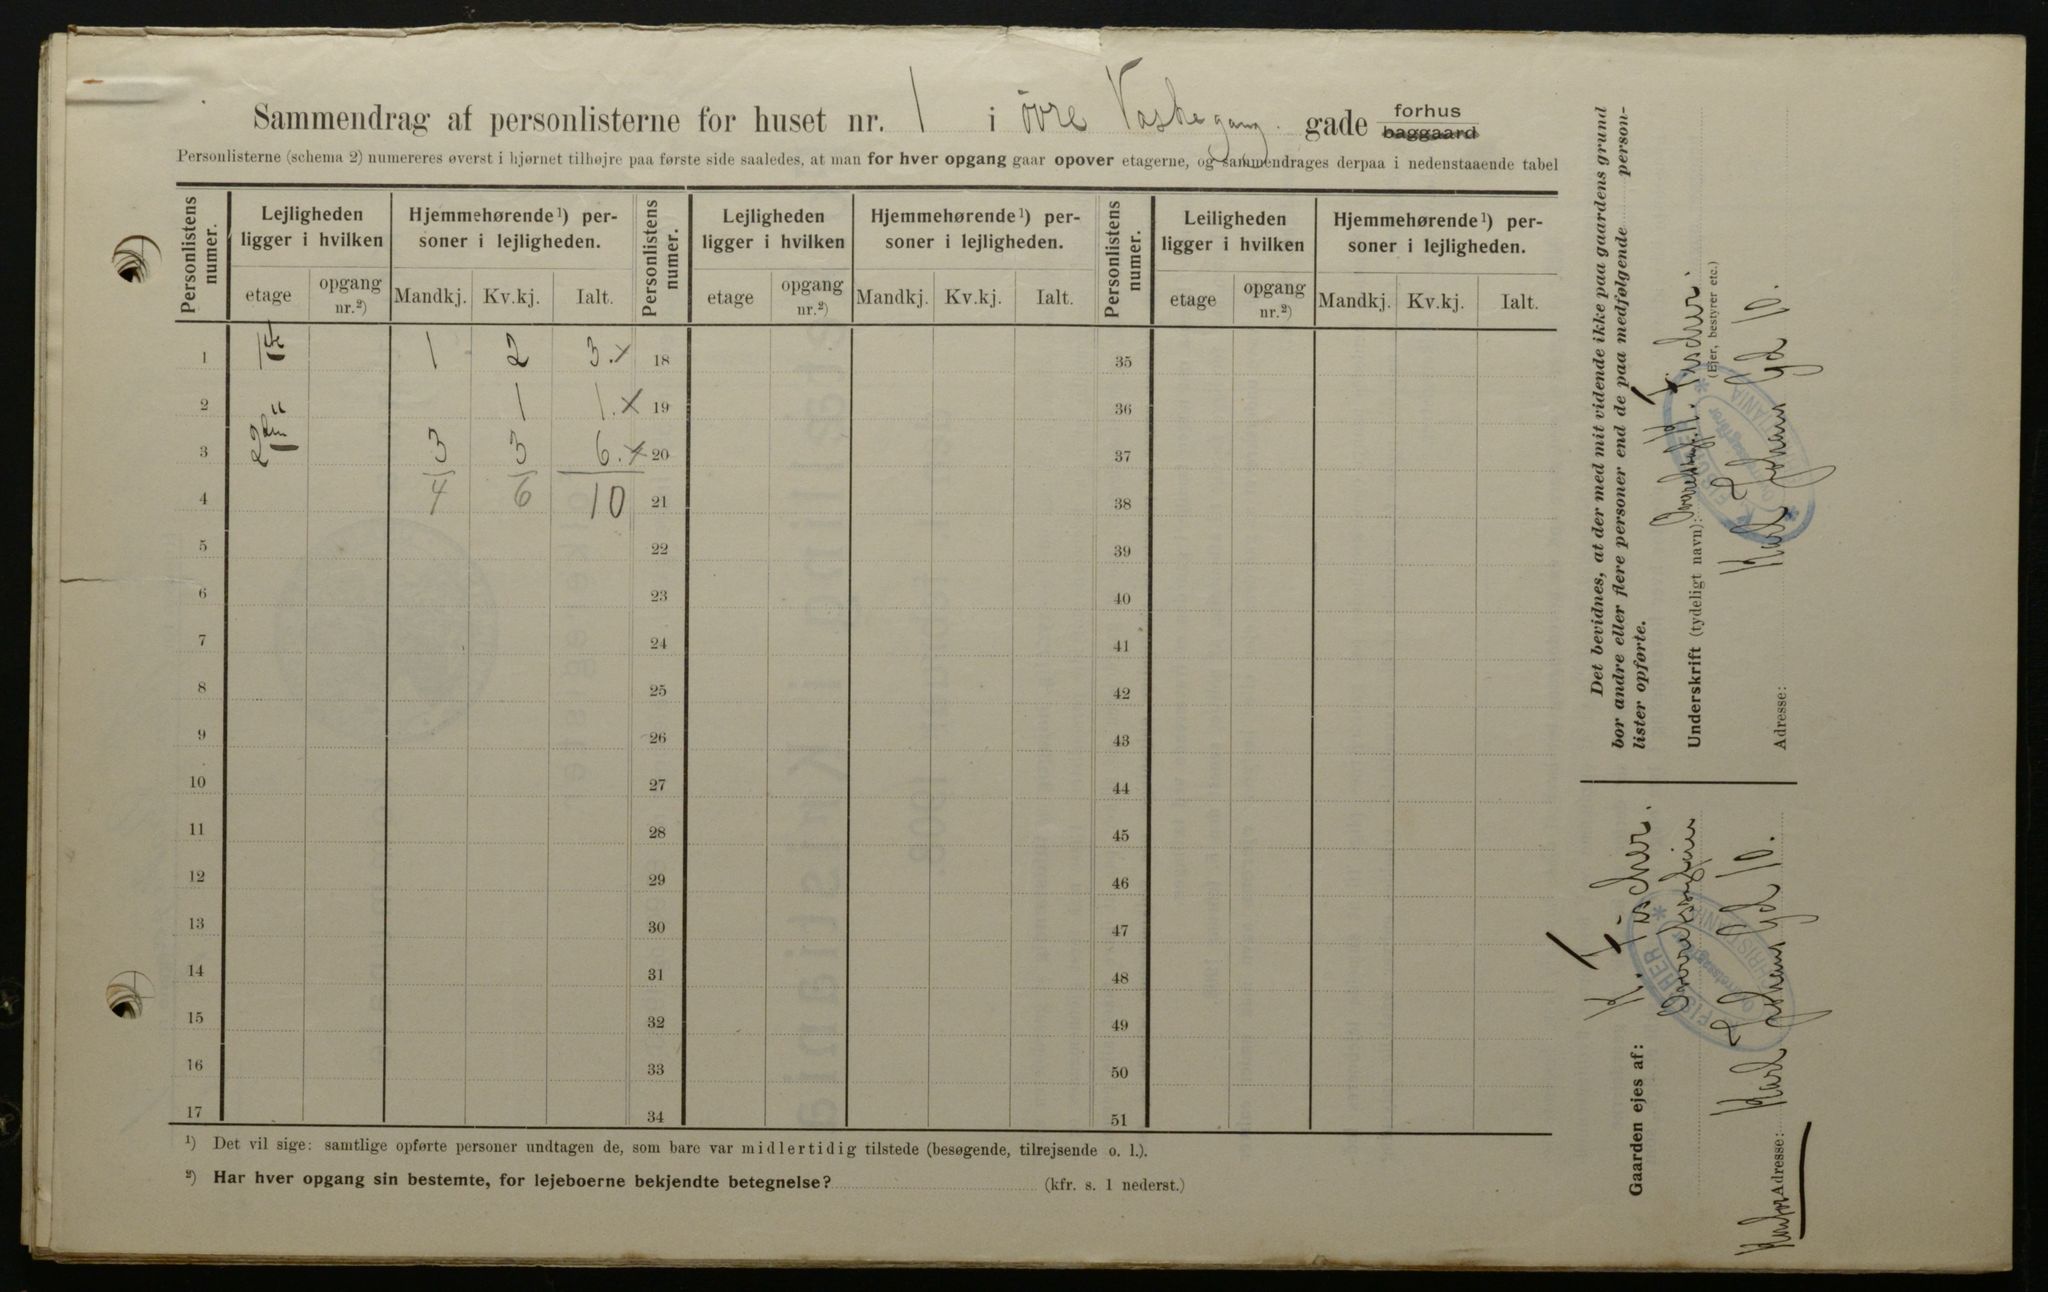 Sammendrag af personlisterne for huset nr. 1 i øvre Vaskegang gade forhus baggaard
Personlisterne (schema 2) numereres øverst i hjørnet tilhøjre paa første side saaledes, at man for hver opgang gaar opover etagerne, og sammendrages derpaa i nedenstaaende tabel
Personlistens numer. Lejligheden ligger i hvilken Hjemmehørende ¹) personer i lejligheden. Personlistens numer. Lejligheden ligger i hvilken Hjemmehørende ¹) personer i lejligheden. Personlistens numer. Leiligheden ligger i hvilken Hjemmehørende ¹) personer i lejligheden.
etage opgang nr.²) Mandkj. Kv.kj. Ialt. etage opgang nr.²) Mandkj. Kv.kj. Ialt. etage opgang nr.²) Mandkj. Kv.kj. Ialt.
1 1ste 1 2 3. x 18 35
2 " 1 1. x 19 36
3 2den 3 3 6. x 20 37
4 4 6 10 21 38
5 22 39
6 23 40
7 24 41
8 25 42
9 26 43
10 27 44
11 28 45
12 29 46
13 30 47
14 31 48
15 32 49
16 33 50
17 34 51
¹) Det vil sige: samtlige opførte personer undtagen de, som bare var midlertidig tilstede (besøgende, tilrejsende o. l.).
²) Har hver opgang sin bestemte, for lejeboerne bekjendte betegnelse? (kfr. s. 1 nederst.)
Det bevidnes, at der med mit vidende ikke paa gaardens grund
bor andre eller flere personer end de paa medfølgende personlister opførte.
Underskrift (tydeligt navn): K. Fischer.
(Ejer, bestyrer etc.)
Adresse: Karl Johans gd 10.
Gaarden ejes af: K. Fischer.
Overretssagfører
Adresse: Karl Johans gd 10.
Kontor
K. FISCHER
Overretssagfører
CHRISTIANIA